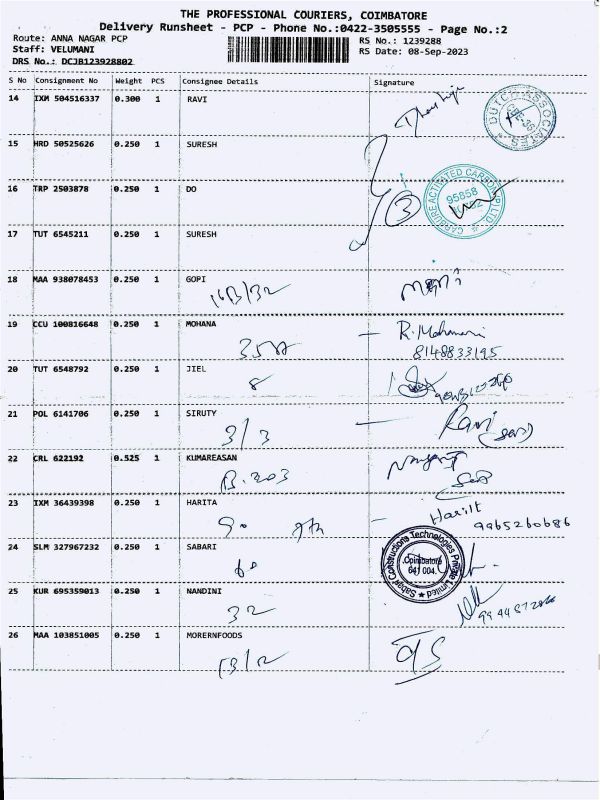 THE PROFESSIONAL COURIERS, COIMBATORE
Delivery Runsheet - PCP - Phone No.:0422-3505555 - Page No.:2
Route: ANNA NAGAR PCP RS No.: 1239288
Staff: VELUMANI RS Date: 08-Sep-2023
DRS No.: DCJB123928802
S No Consignment No Weight PCS Consignee Details Signature
14 IXM 504516337 0.300 1 RAVI
DUTCH ASSOCIATES
15 HRD 50525626 0.250 1 SURESH
16 TRP 2503878 0.250 1 DO
3
CARBURE ACTIVATED CARBON (P) LTD.
95858
17 TUT 6545211 0.250 1 SURESH
18 MAA 938078453 0.250 1 GOPI
19 CCU 100816648 0.250 1 MOHANA
R. Mohana
8148833195
20 TUT 6548792 0.250 1 JIEL
8
21 POL 6141706 0.250 1 SIRUTY
3/3 Ravi
22 CRL 622192 0.525 1 KUMAREASAN
B.203
23 IXM 36439398 0.250 1 HARITA
90 Harilt
9965260686
24 SLM 327967232 0.250 1 SABARI
Sabar Constructions Technologies Private Limited
Coimbatore
641 004.
25 KUR 695359013 0.250 1 NANDINI
32
26 MAA 103851005 0.250 1 MORERNFOODS